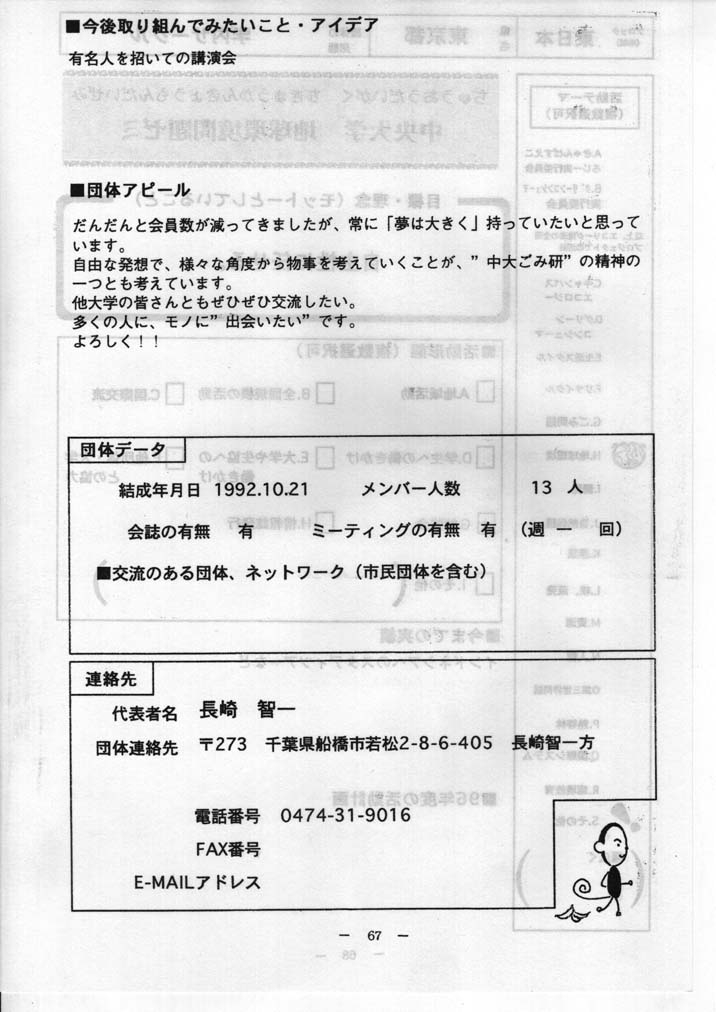 ■今後取り組んでみたいこと・アイデア
有名人を招いての講演会
■団体アピール
だんだんと会員数が減ってきましたが、常に「夢は大きく」持っていたいと思って
います。
自由な発想で、様々な角度から物事を考えていくことが、”中大ごみ研”の精神の
一つとも考えています。
他大学の皆さんともぜひぜひ交流したい。
多くの人に、モノに”出会いたい”です。
よろしく！！
団体データ
結成年月日 1992.10.21 メンバー人数 13 人
会誌の有無 有 ミーティングの有無 有 （週 一 回）
■交流のある団体、ネットワーク（市民団体を含む）
連絡先
代表者名 長崎 智一
団体連絡先 〒273 千葉県船橋市若松2-8-6-405 長崎智一方
電話番号 0474-31-9016
FAX番号
E-MAILアドレス
— 67 —